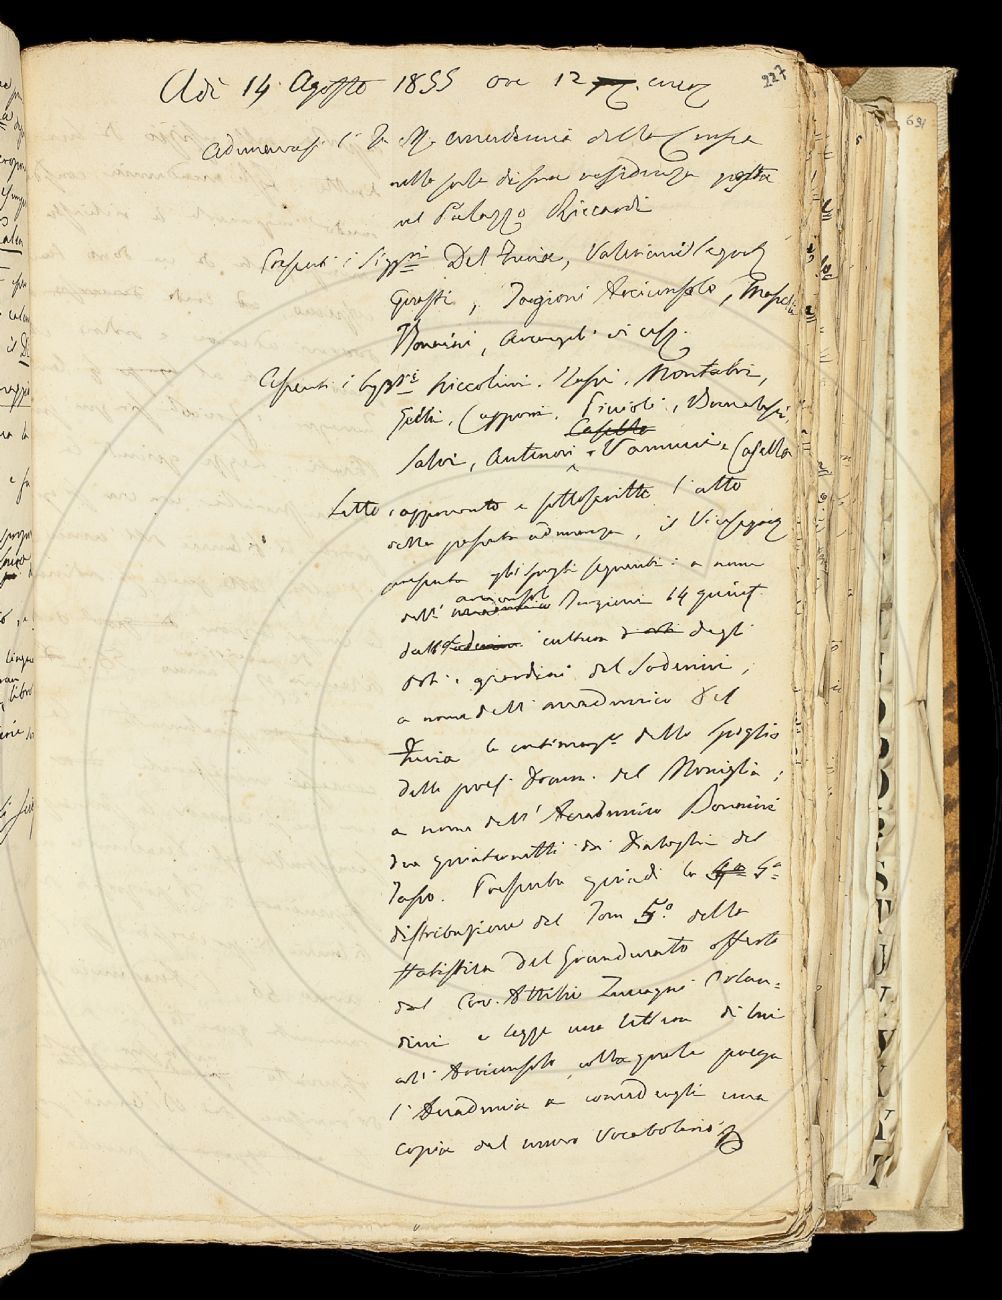 227
Adì 14 Agosto 1855 ore 12 circa
Adunavasi l' I. e R. Accademia della Crusca
nella sala di sua residenza posta
nel Palazzo Riccardi
Presenti i Sigg.ri Del Furia, Valeriani
Guasti, Targioni Arciconsolo,
Bonaini, Arcangeli vi
Assenti i Sigg.ri Niccolini, Nespi, Montalvi,
Gelli, Capponi, Tirioli,
Casella
Salvi, Antinori e Vannucci e Casella
Letto, approvato e sottoscritto l'atto
della passata adunanza, il Vicesegr.
presenta gli spogli seguenti: a nome
arciconsolo
dell' accademico Targioni 14 quint.
dalla cultura di orti degli
orti e giardini del Soderini;
a nome dell' accademico Del
Furia la continuaz. dello spoglio
delle poes. dram. del Moniglia;
a nome dell' Accademico Bonaini
due quinternetti dei Dialoghi del
Tasso. Presenta quindi la 5a
distribuzione del Tom. 5.o della
Statistica del Granducato offerta
dal Cav. Attilio Zuccagni Orlan-
dini e legge una lettera di lui
all' Arciconsolo, colla quale prega
l' Accademia a concedergli una
copia del nuovo Vocabolario
691